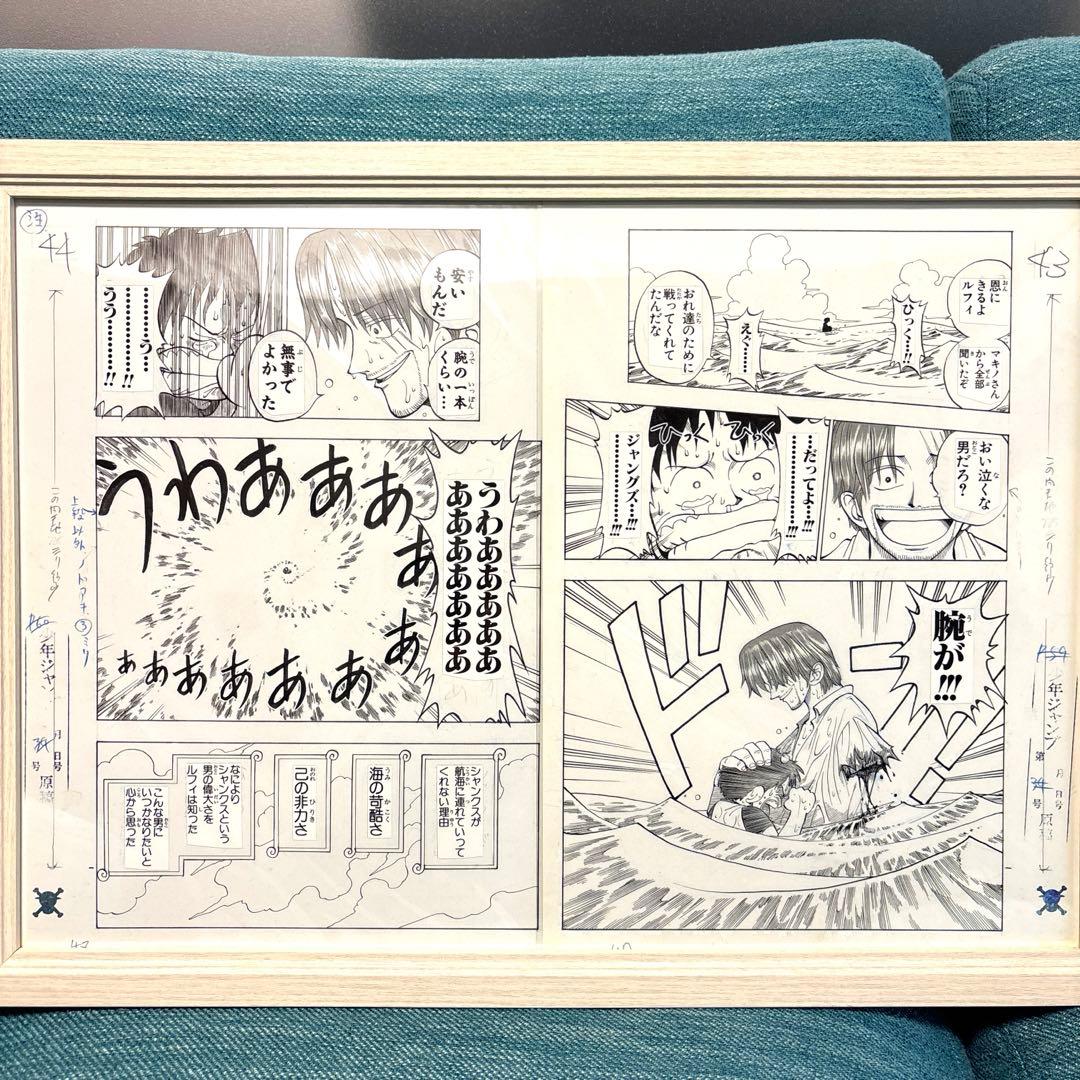 43
恩に
きるよ
ルフィ
マキノさん
から全部
聞いたぞ
ひっ…!!
えぐ……
おれ達のために
戦ってくれて
たんだな
おい泣くな
男だろ?
……だってよ……!!!
ジャングズ…!!!
ひっく
ひっく
腕が!!!
ドドド
年ジャンプ
第
月
日号
号
原稿
44
安い
もんだ
腕の一本
くらい…
無事で
よかった
………う…
うう………!!
うわああああああ
ああああああああ
うわあああああああああああ
シャンクスが
航海に連れていって
くれない理由
海の苛酷さ
己の非力さ
なにより
シャンクスという
男の偉大さを
ルフィは知った
こんな男に
いつかなりたいと
心から思った
上段以外ノドアキ③ミリ
年ジャン
月
日号
号
原稿